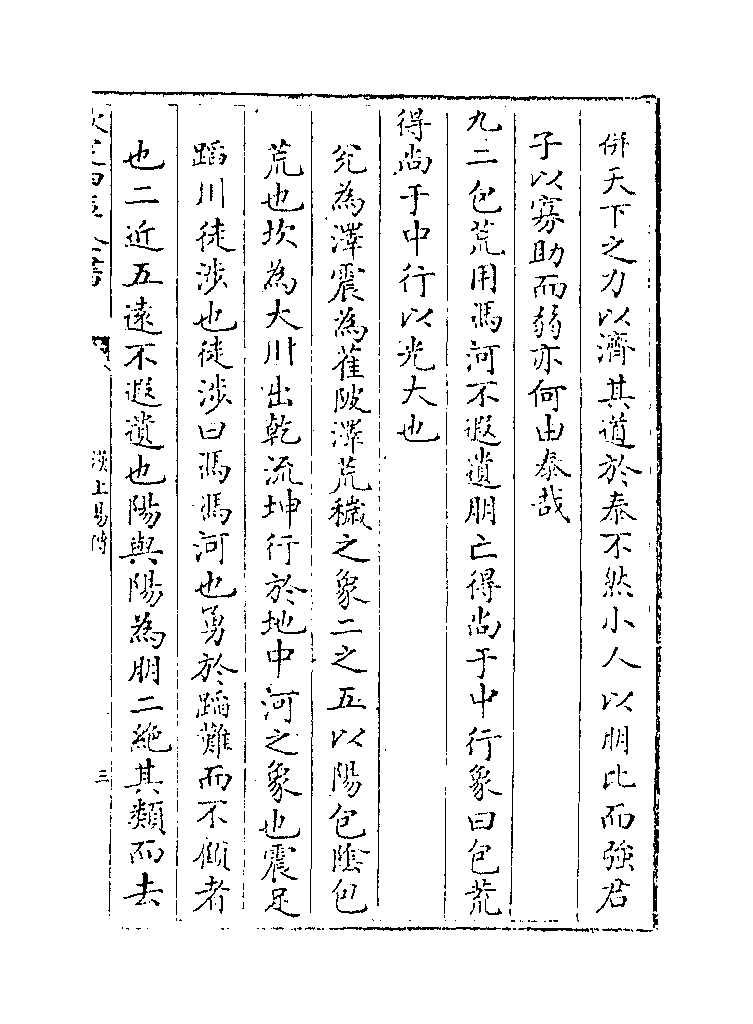 併天下之力以濟其道於泰不然小人以朋比而強君
子以寡助而弱亦何由泰哉
九二包荒用馮河不遐遺朋亡得尚于中行象曰包荒
得尚于中行以光大也
兌為澤震為萑陂澤荒穢之象二之五以陽包陰包
荒也坎為大川出乾流坤行於地中河之象也震足
蹈川徒涉也徒涉曰馮馮河也勇於蹈難而不顧者
也二近五遠不遐遺也陽與陽為朋二絶其類而去
欽定四庫全書
漢上易傳
三